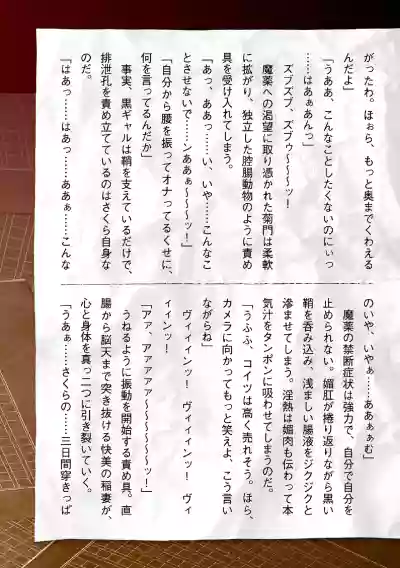 がったわ。ほぉら、もっと奥までくわえる
んだよ」
「うああ、こんなことしたくないのにぃっ
……はあぁあんっ」
ズブズブ、ズブゥ〜〜〜ッ！
魔薬への渇望に取り憑かれた菊門は柔軟
に拡がり、独立した腔腸動物のように責め
具を受け入れてしまう。
「あっ、ああっ……い、いや……こんなこ
とさせないで……ンああぁ〜〜〜ッ！」
「自分から腰を振ってオナってるくせに、
何を言ってるんだか」
事実、黒ギャルは鞘を支えているだけで、
排泄孔を責め立てているのはさくら自身な
のだ。
「はあっ……はあっ……ああぁ……こんな
のいや、いやぁ……ああぁぁむ」
魔薬の禁断症状は強力で、自分で自分を
止められない。媚肛が捲り返りながら黒い
鞘を呑み込み、浅ましい腸液をジクジクと
滲ませてしまう。淫熱は媚肉も伝わって本
気汁をタンポンに吸わせてしまうのだ。
「うふふ、コイツは高く売れそう。ほら、
カメラに向かってもっと笑えよ、こう言い
ながらね」
ヴィィィンッ！　ヴィィィンッ！　ヴィ
ィィンッ！
「アァ、アァァァァ〜〜〜〜〜〜ッ！」
うねるように振動を開始する責め具。直
腸から脳天まで突き抜ける快美の稲妻が、
心と身体を真っ二つに引き裂いていく。
「うあぁ……さくらの……三日間穿きっぱ